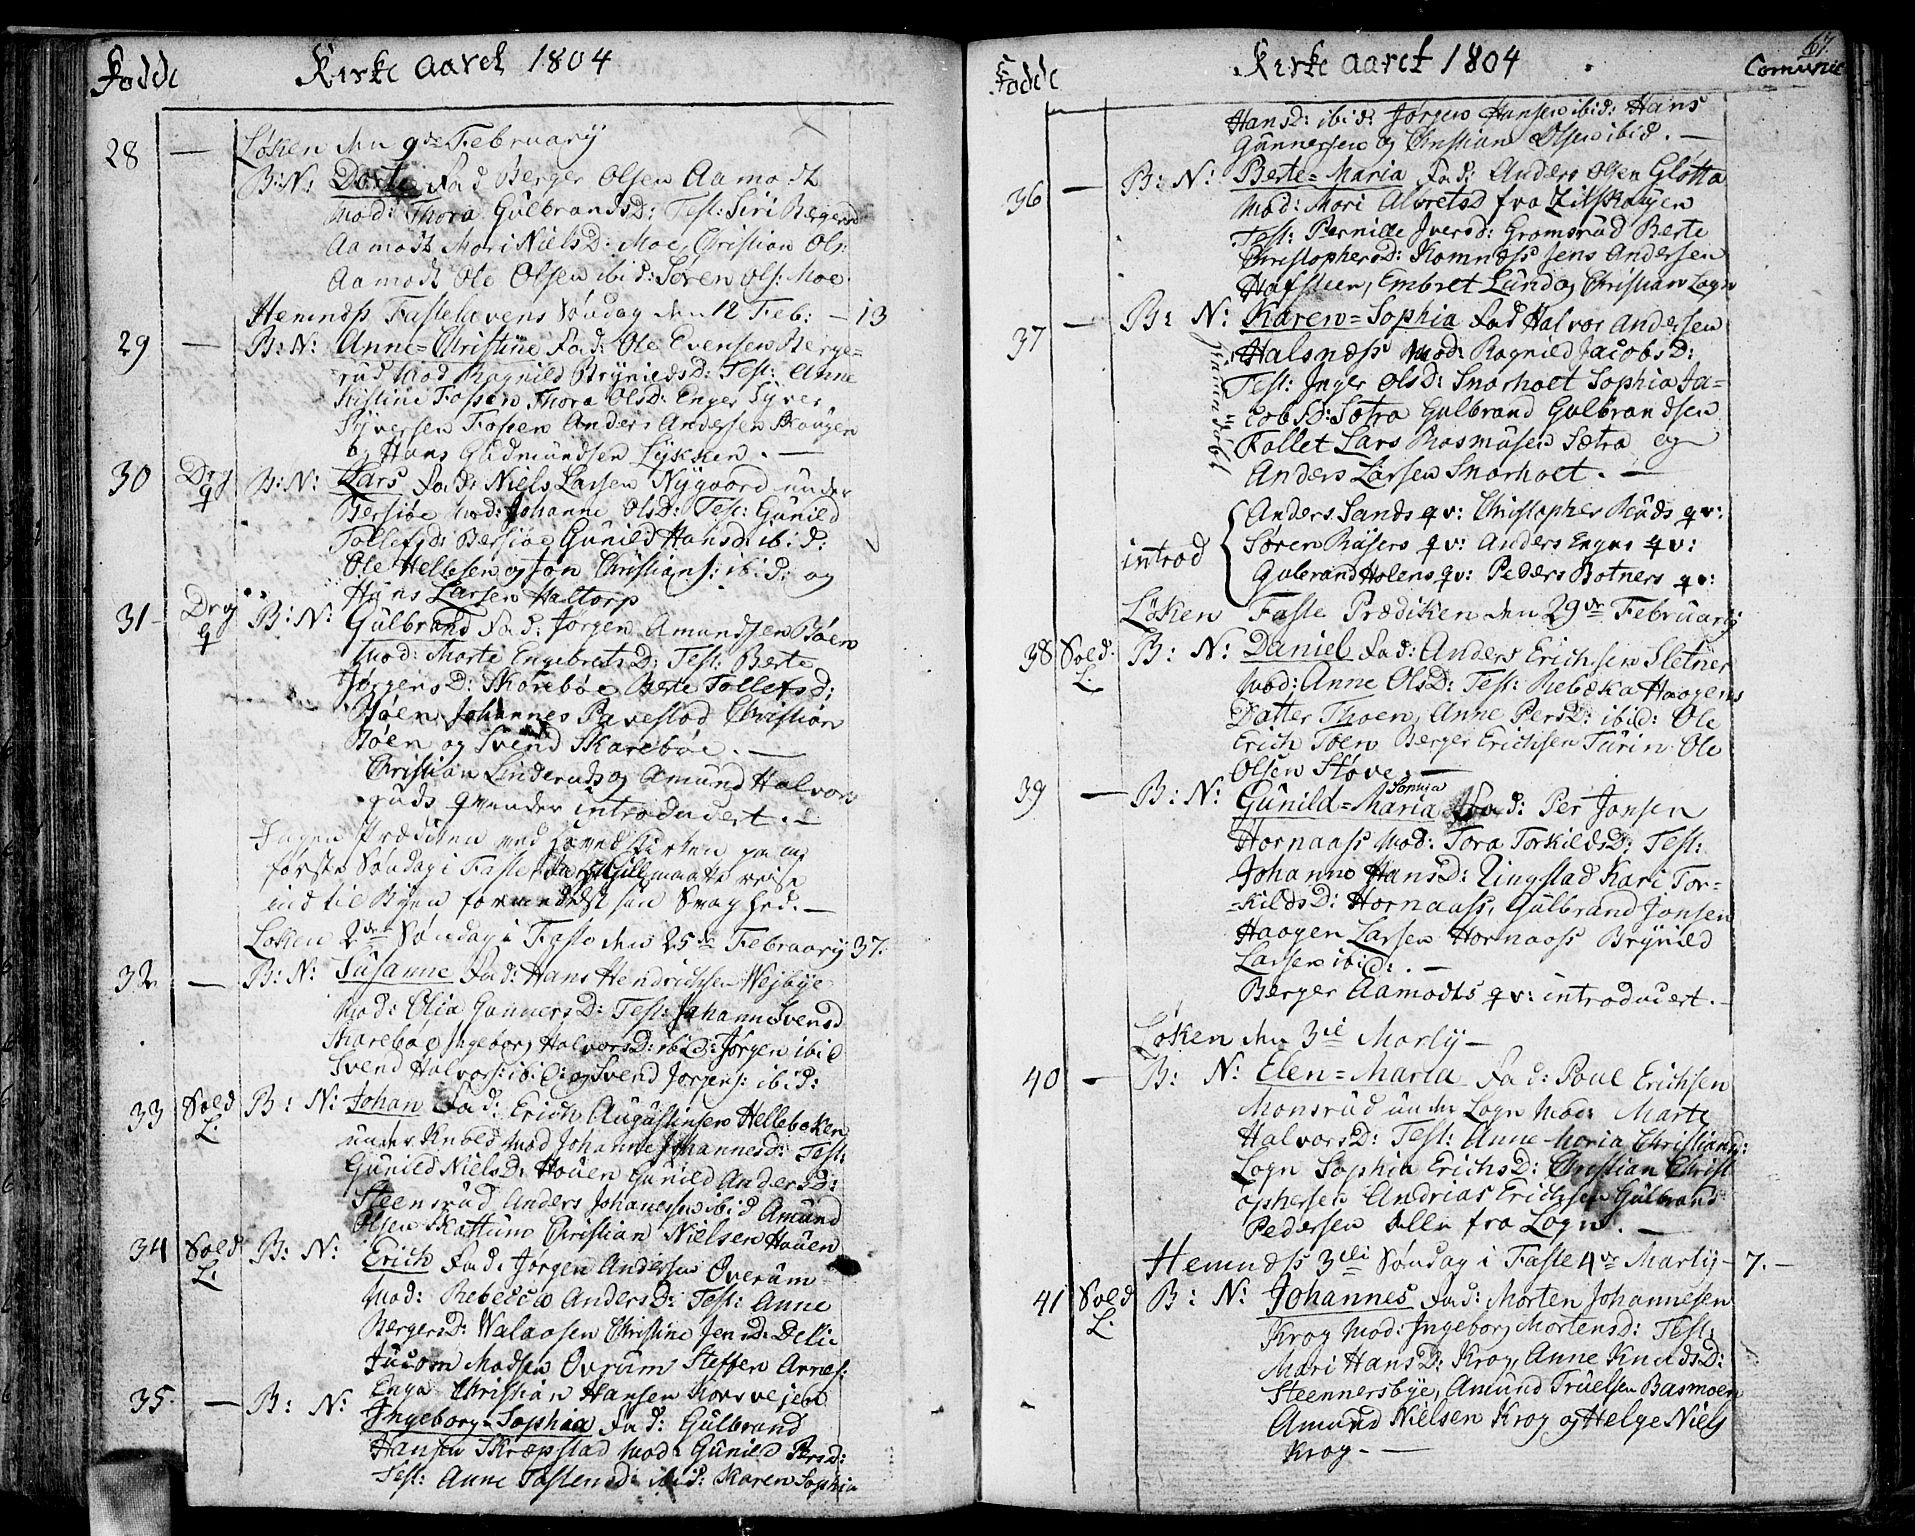 Fødde
Kirke aaret 1804
28 — Løken den 9de February
B: N: Dorte Fad Berger Olsen Aamodt
Mod: Thora Gulbrandsd: Test: Siri Bergersd
Aamodt Mari NielsD: Moe, Christian Ols:
Aamodt Ole Olsen ibid: Søren Ols: Moe.
Hemnæss Fastelavens Søndag den 12 Feb: — 13
29 — B: N: Anne=Christine Fad: Ole Evensen Berge=
rud Mod Ragnild BrynildsD: Test: Anne
Kistine Fossen Thora OlsD: Enger Syver
Syversen Fossen Anders Andersen Skougen
og Hans Gudmundsen Lykken. —
30 Drg B: N: Lars Fad: Niels Larsen Nygaard under
Bersiøe Mod: Johanne OlsD: Test: Gunild
Tollefsd: Bersiøe Gunild Hansd: ibid:
Ole Hellesen og Jon Christians: ibid: og
Hans Larsen Haltorp
31 — Drg B: N: Gulbrand Fad: Jørgen Amundsen Bøen
Mod: Morte EngebretsD: Test: Berte
JørgersD: Skarebøe Berte Tollefsd:
Bøen Johannes Pavestad Christian
Bøen og Svend Skarebøe. —
Christian Linderuds og Amund Halvors
ruds qvender introducert. —
Ingen Prædiken ved Hoved Kirken paa
første Søndag i Faste maatte reise
ind til Byen formedelst sin Svaghed. —
Løken 2den Søndag i Faste den 25de February 37.
32 — B: N: Susanne Fad: Hans Hendrichsen Wejbye
Mod: Elia GunnersD: Test: Johann Svensd
Skarebøe Ingeborg HalvorsD: ibid: Jørgen ibid
Svend Halvors: ibid: og Svend Jørgens: ibid:
33 Sold L: B: N: Johan Fad: Erich Augustinsen Hellebeken
under Knold Mod Johanne Johannesd: Test:
Gunild NielsD: Houen Gunild AndersD:
Steensrud Anders Johanessen ibid Amund
Olsen Skattum Christian Nielsen Houen
34 Sold L: B: N: Erich Fad: Jørgen Andersen Overum
Mod: Rebecca AndersD: Test: Anne
BergersD: Walaasen Christine JensD: Delie
Jacom Madsen Ovrum Steffen Arnes:
Enga Christian Hansen Korsvejen
35. — B: N: Ingeborg=Sophia Fad: Gulbrand
Hansen Skrepstad Mod: Gunild Persd:
Test: Anne Tostensd: ibid: Karen Sophia
Fødde
Kirke aaret 1804
67.
Comunic
HansD: ibid: Jørgen Hansen ibid: Hans
Gunnersen og Christian Olsen ibid. —
36 — B: N: Berte=Maria Fad: Anders Olsen Glotta
Mod: Mari Alvretsd fra Eilskougen
Test: Pernille Iversd: Gromsrud Berte
ChristophersD: Komnæss Jens Andersen
Hafsteen, Embret Lund og Christian Logn
37 — B: N: Karen=Sophia Fad Halvor Andersen
Halsnæss Mod: Ragnild JacobsD:
Test: Inger OlsD: Snarholt Sophia Ja=
cobsD: Sætra Gulbrand Gulbrandsen
Follet Lars Rasmusen Sætra og
Anders Larsen Snarholt. —
introd { Anders Sands qv: Christopher Ruds qv:
Søren Risers qv: Anders Engns qv:
Gulbrand Holens qv: Peders Botners qv:
Løken Faste Prædiken den 29de February
38 Sold: L: B: N: Daniel Fad: Anders Erichsen Sletner
Mod: Anne OlsD: Test: Rebeka Haagens
Datter Thoen, Anne PersD: ibid: Ole
Erich Toen Berger Erichsen Turin Ole
Olsen Støve. —
39 — B: N: Gunild=Maria Sophia Fad: Per Jonsen
Hornaass Mod: Tora TorkildsD: Test:
Johanne HansD: Ringstad Kari Tor=
=kildsD: Hornaass, Gulbrand Jonsen
Haagen Larsen Hornaass Brynild
Larsen ibid: . —
Berger Aamodts qv: introducert. —
Løken den 3die Martij —
40 — B: N: Elen=Maria Fad: Poul Erichsen
Monsrud under Logn Mod: Marte
HalvorsD: Test: Anne Maria Christiansd:
Logn Sophia ErichsD: Christian Christ
ophersen Andrias Erichsen Gulbrand
Pedersen alle fra Logn. —
Hemnæss 3die Søndag i Faste 4de Martij — 7. —
41 Sold L: B: N: Johannes Fad: Morten Johannesen
Krog Mod: Ingeborg Mortensd: Test:
Mari HansD: Krog, Anne KnudsD:
Steennersbye, Amund Truelsen Basmoen
Amund Nielsen Krog og Helge Niels
Krog. —